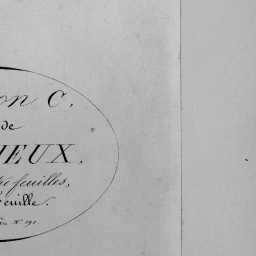 on C.
de
IEUX.
feuilles,
feuille.
N° 191.